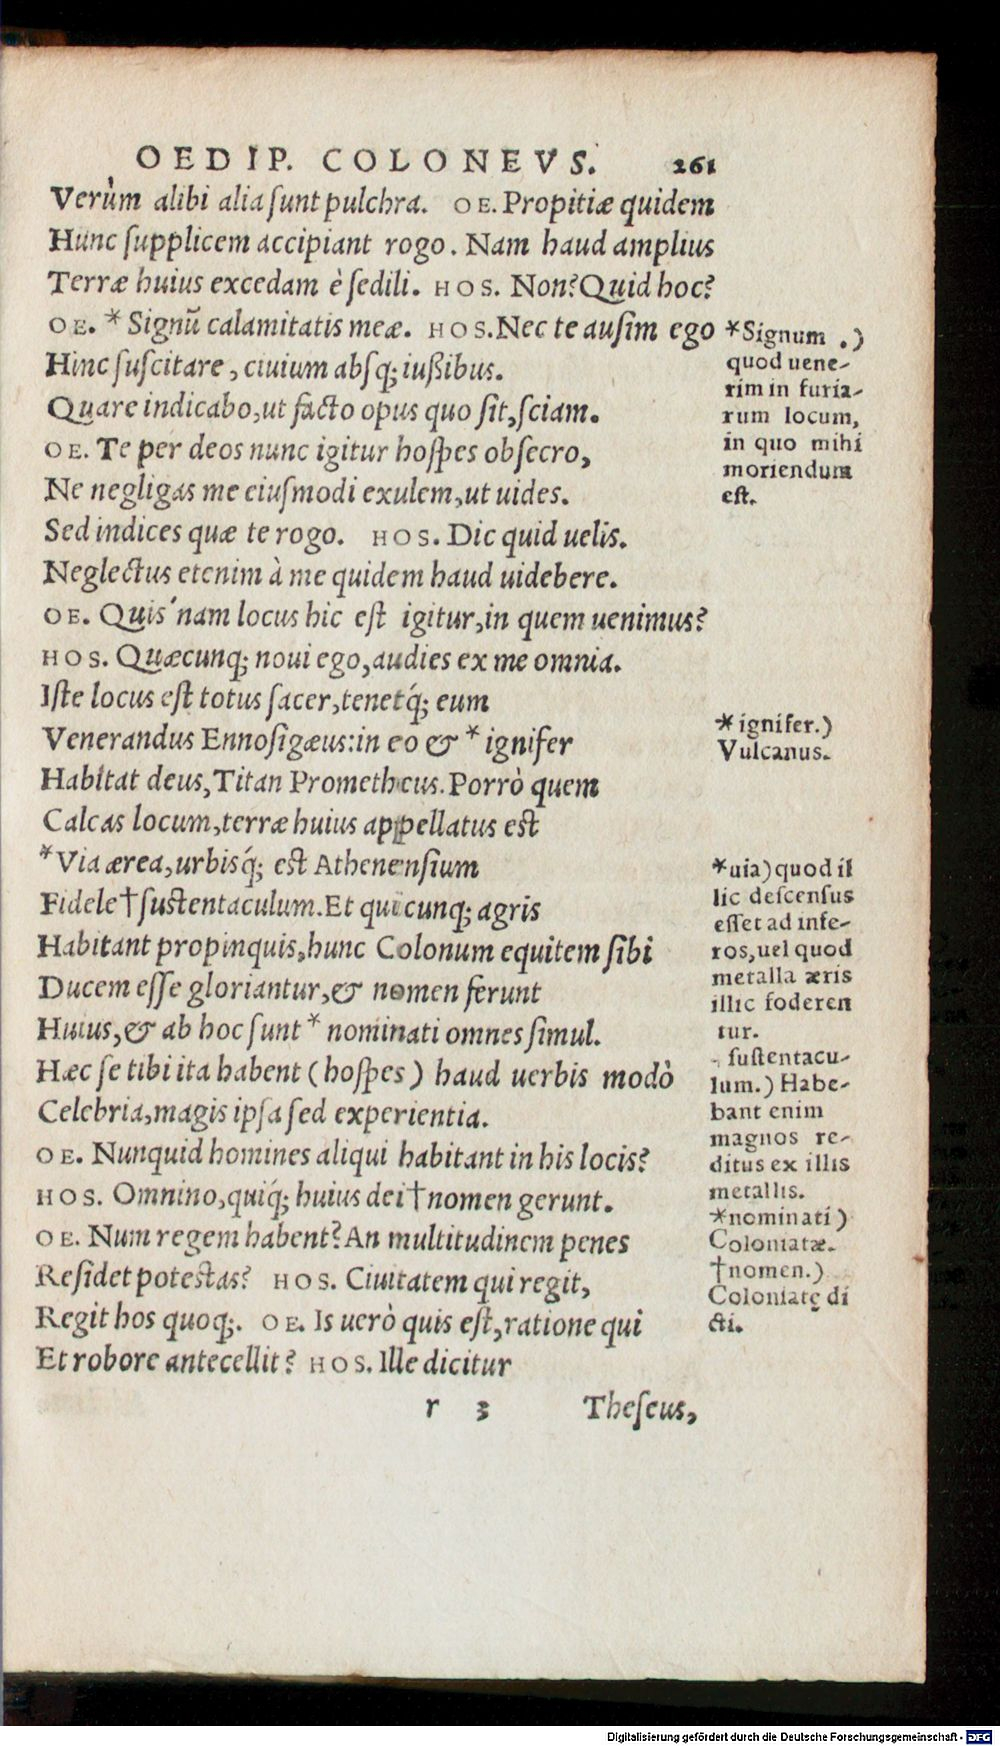 OEDIP. COLONEVS. 261
Verùm alibi alia sunt pulchra. OE. Propitiæ quidem
Hunc supplicem accipiant rogo. Nam haud amplius
Terræ huius excedam è sedili. HOS. Non? Quid hoc?
OE. * Signū calamitatis meæ. HOS. Nec te ausim ego
Hinc suscitare, ciuium absq; iußibus.
Quare indicabo, ut facto opus quo sit, sciam.
OE. Te per deos nunc igitur hospes obsecro,
Ne negligas me eiusmodi exulem, ut uides.
Sed indices quæ te rogo. HOS. Dic quid uelis.
Neglectus etenim à me quidem haud uidebere.
OE. Quis'nam locus hic est igitur, in quem uenimus?
HOS. Quæcunq; noui ego, audies ex me omnia.
Iste locus est totus sacer, tenetq́; eum
Venerandus Ennosigæus: in eo & * ignifer
Habitat deus, Titan Prometheus. Porrò quem
Calcas locum, terræ huius appellatus est
* Via ærea, urbisq́; est Athenensium
Fidele † sustentaculum. Et quicunq; agris
Habitant propinquis, hunc Colonum equitem sibi
Ducem esse gloriantur, & nomen ferunt
Huius, & ab hoc sunt * nominati omnes simul.
Hæc se tibi ita habent (hospes) haud uerbis modò
Celebria, magis ipsa sed experientia.
OE. Nunquid homines aliqui habitant in his locis?
HOS. Omnino, quiq́; huius dei † nomen gerunt.
OE. Num regem habent? An multitudinem penes
Residet potestas? HOS. Ciuitatem qui regit,
Regit hos quoq;. OE. Is uerò quis est, ratione qui
Et robore antecellit? HOS. Ille dicitur
r 3 Theseus,
*Signum .)
quod uene-
rim in furia-
rum locum,
in quo mihi
moriendum
est.
*ignifer.)
Vulcanus.
*uia) quod il
lic descensus
esset ad infe-
ros, uel quod
metalla æris
illic foderen
tur.
sustentacu-
lum.) Habe-
bant enim
magnos re-
ditus ex illis
metallis.
*nominati)
Coloniatæ.
†nomen.)
Coloniatę di
cti.
Digitalisierung gefördert durch die Deutsche Forschungsgemeinschaft - DFG